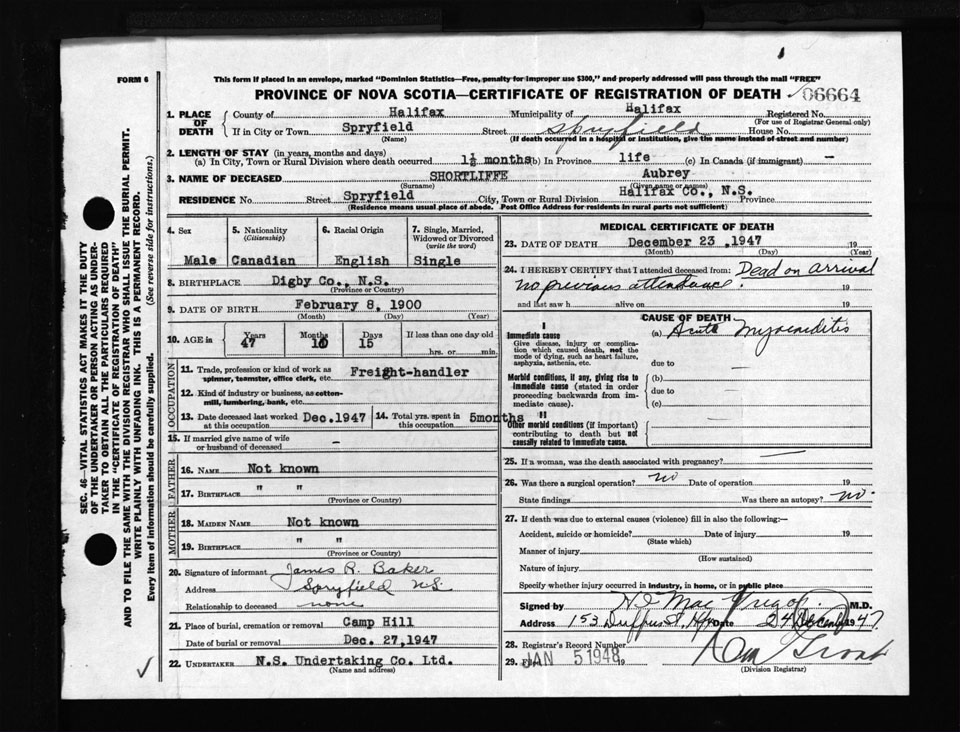 FORM 6
This form if placed in an envelope, marked "Dominion Statistics—Free, penalty for improper use $300," and properly addressed will pass through the mail "FREE"
PROVINCE OF NOVA SCOTIA—CERTIFICATE OF REGISTRATION OF DEATH 06664
1. PLACE OF DEATH County of Halifax Municipality of Halifax Registered No.
(For use of Registrar General only)
If in City or Town Spryfield Street Spryfield House No.
(Name) (If death occurred in a hospital or institution, give the name instead of street and number)
2. LENGTH OF STAY (in years, months and days)
(a) In City, Town or Rural Division where death occurred 1½ months (b) In Province life (c) In Canada (if immigrant) —
3. NAME OF DECEASED SHORTLIFFE Aubrey
(Surname) (Given name or names)
RESIDENCE No. Street Spryfield City, Town or Rural Division Halifax Co., N.S. Province
(Residence means usual place of abode. Post Office Address for residents in rural parts not sufficient)
4. Sex 5. Nationality (Citizenship) 6. Racial Origin 7. Single, Married, Widowed or Divorced (write the word)
Male Canadian English Single
8. BIRTHPLACE Digby Co., N.S.
(Province or Country)
9. DATE OF BIRTH February 8, 1900
(Month) (Day) (Year)
10. AGE in Years Months Days If less than one day old
47 10 15 hrs. or min.
OCCUPATION
11. Trade, profession or kind of work as spinner, teamster, office clerk, etc. Freight-handler
12. Kind of industry or business, as cotton-mill, lumbering, bank, etc.
13. Date deceased last worked at this occupation Dec.1947 14. Total yrs. spent in this occupation 5months
15. If married give name of wife or husband of deceased –
FATHER
16. NAME Not known
17. BIRTHPLACE " "
(Province or Country)
MOTHER
18. MAIDEN NAME Not known
19. BIRTHPLACE " "
(Province or Country)
20. Signature of informant James R. Baker
Address Spryfield N.S.
Relationship to deceased none
21. Place of burial, cremation or removal Camp Hill
Date of burial or removal Dec. 27,1947
22. UNDERTAKER N.S. Undertaking Co. Ltd.
(Name and address)
MEDICAL CERTIFICATE OF DEATH
23. DATE OF DEATH December 23,1947 19
(Month) (Day) (Year)
24. I HEREBY CERTIFY that I attended deceased from: Dead on arrival
no previous attendance. 19
and last saw h alive on 19
CAUSE OF DEATH
I
Immediate cause (a) Acute Myocarditis
Give disease, injury or complication which caused death, not the mode of dying, such as heart failure, asphyxia, asthenia, etc. due to —
Morbid conditions, if any, giving rise to immediate cause (stated in order proceeding backwards from immediate cause). (b)
due to —
(c)
II
Other morbid conditions (if important) contributing to death but not causally related to immediate cause.
25. If a woman, was the death associated with pregnancy? —
26. Was there a surgical operation? no Date of operation 19
State findings Was there an autopsy? no.
27. If death was due to external causes (violence) fill in also the following:—
Accident, suicide or homicide? Date of injury 19
(State which)
Manner of injury
(How sustained)
Nature of injury
Specify whether injury occurred in industry, in home, or in public place
Signed by M.D.
Address 153 Duffus St, Hfx Date 24 Dec 1947
28. Registrar's Record Number
29. JAN 5 1948 19
(Division Registrar)
SEC. 46—VITAL STATISTICS ACT MAKES IT THE DUTY
OF THE UNDERTAKER OR PERSON ACTING AS UNDER-
TAKER TO OBTAIN ALL THE PARTICULARS REQUIRED
IN THE "CERTIFICATE OF REGISTRATION OF DEATH"
AND TO FILE THE SAME WITH THE DIVISION REGISTRAR WHO SHALL ISSUE THE BURIAL PERMIT.
WRITE PLAINLY WITH UNFADING INK. THIS IS A PERMANENT RECORD.
Every item of information should be carefully supplied. (See reverse side for instructions.)